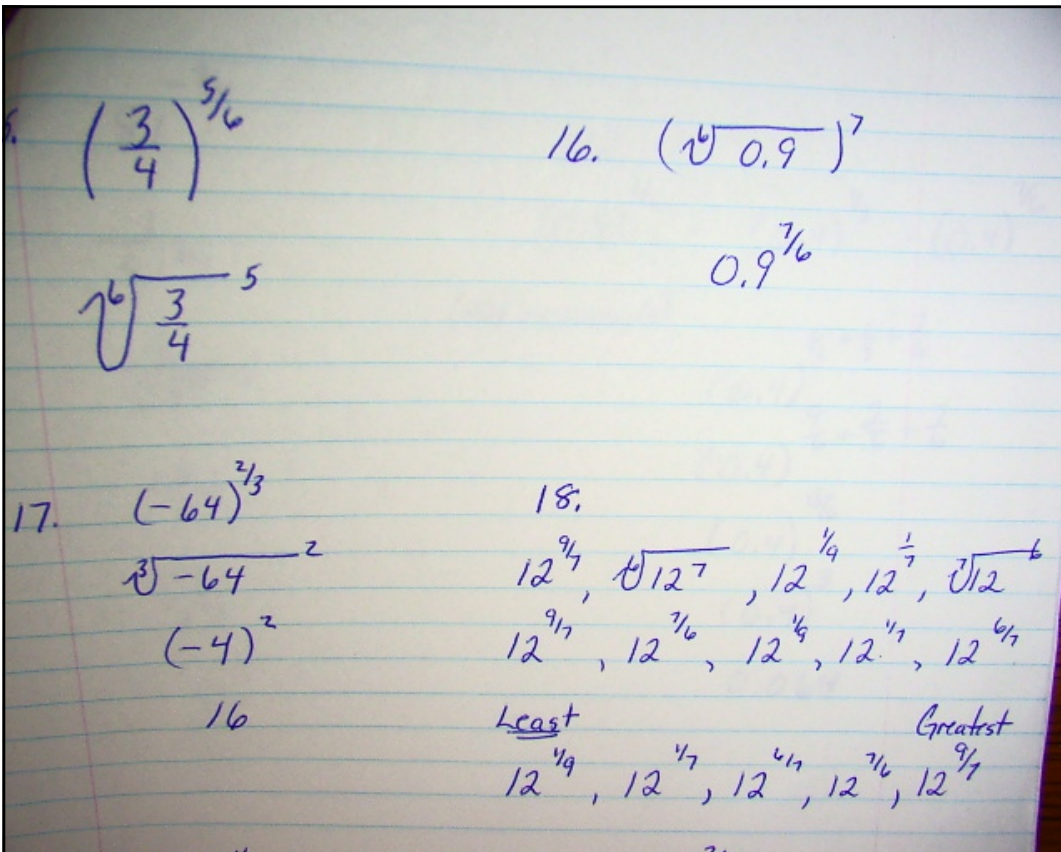 (3/4)^5/6
⁶√(3/4) ^5
16. (⁶√0.9)^7
0.9^7/6
17. (-64)^2/3
³√-64 ^2
(-4)^2
16
18.
12^9/7, ⁶√12^7, 12^1/9, 12^1/7, ⁷√12 ^6
12^9/7, 12^7/6, 12^1/9, 12^1/7, 12^6/7
Least Greatest
12^1/9, 12^1/7, 12^6/7, 12^7/6, 12^9/7